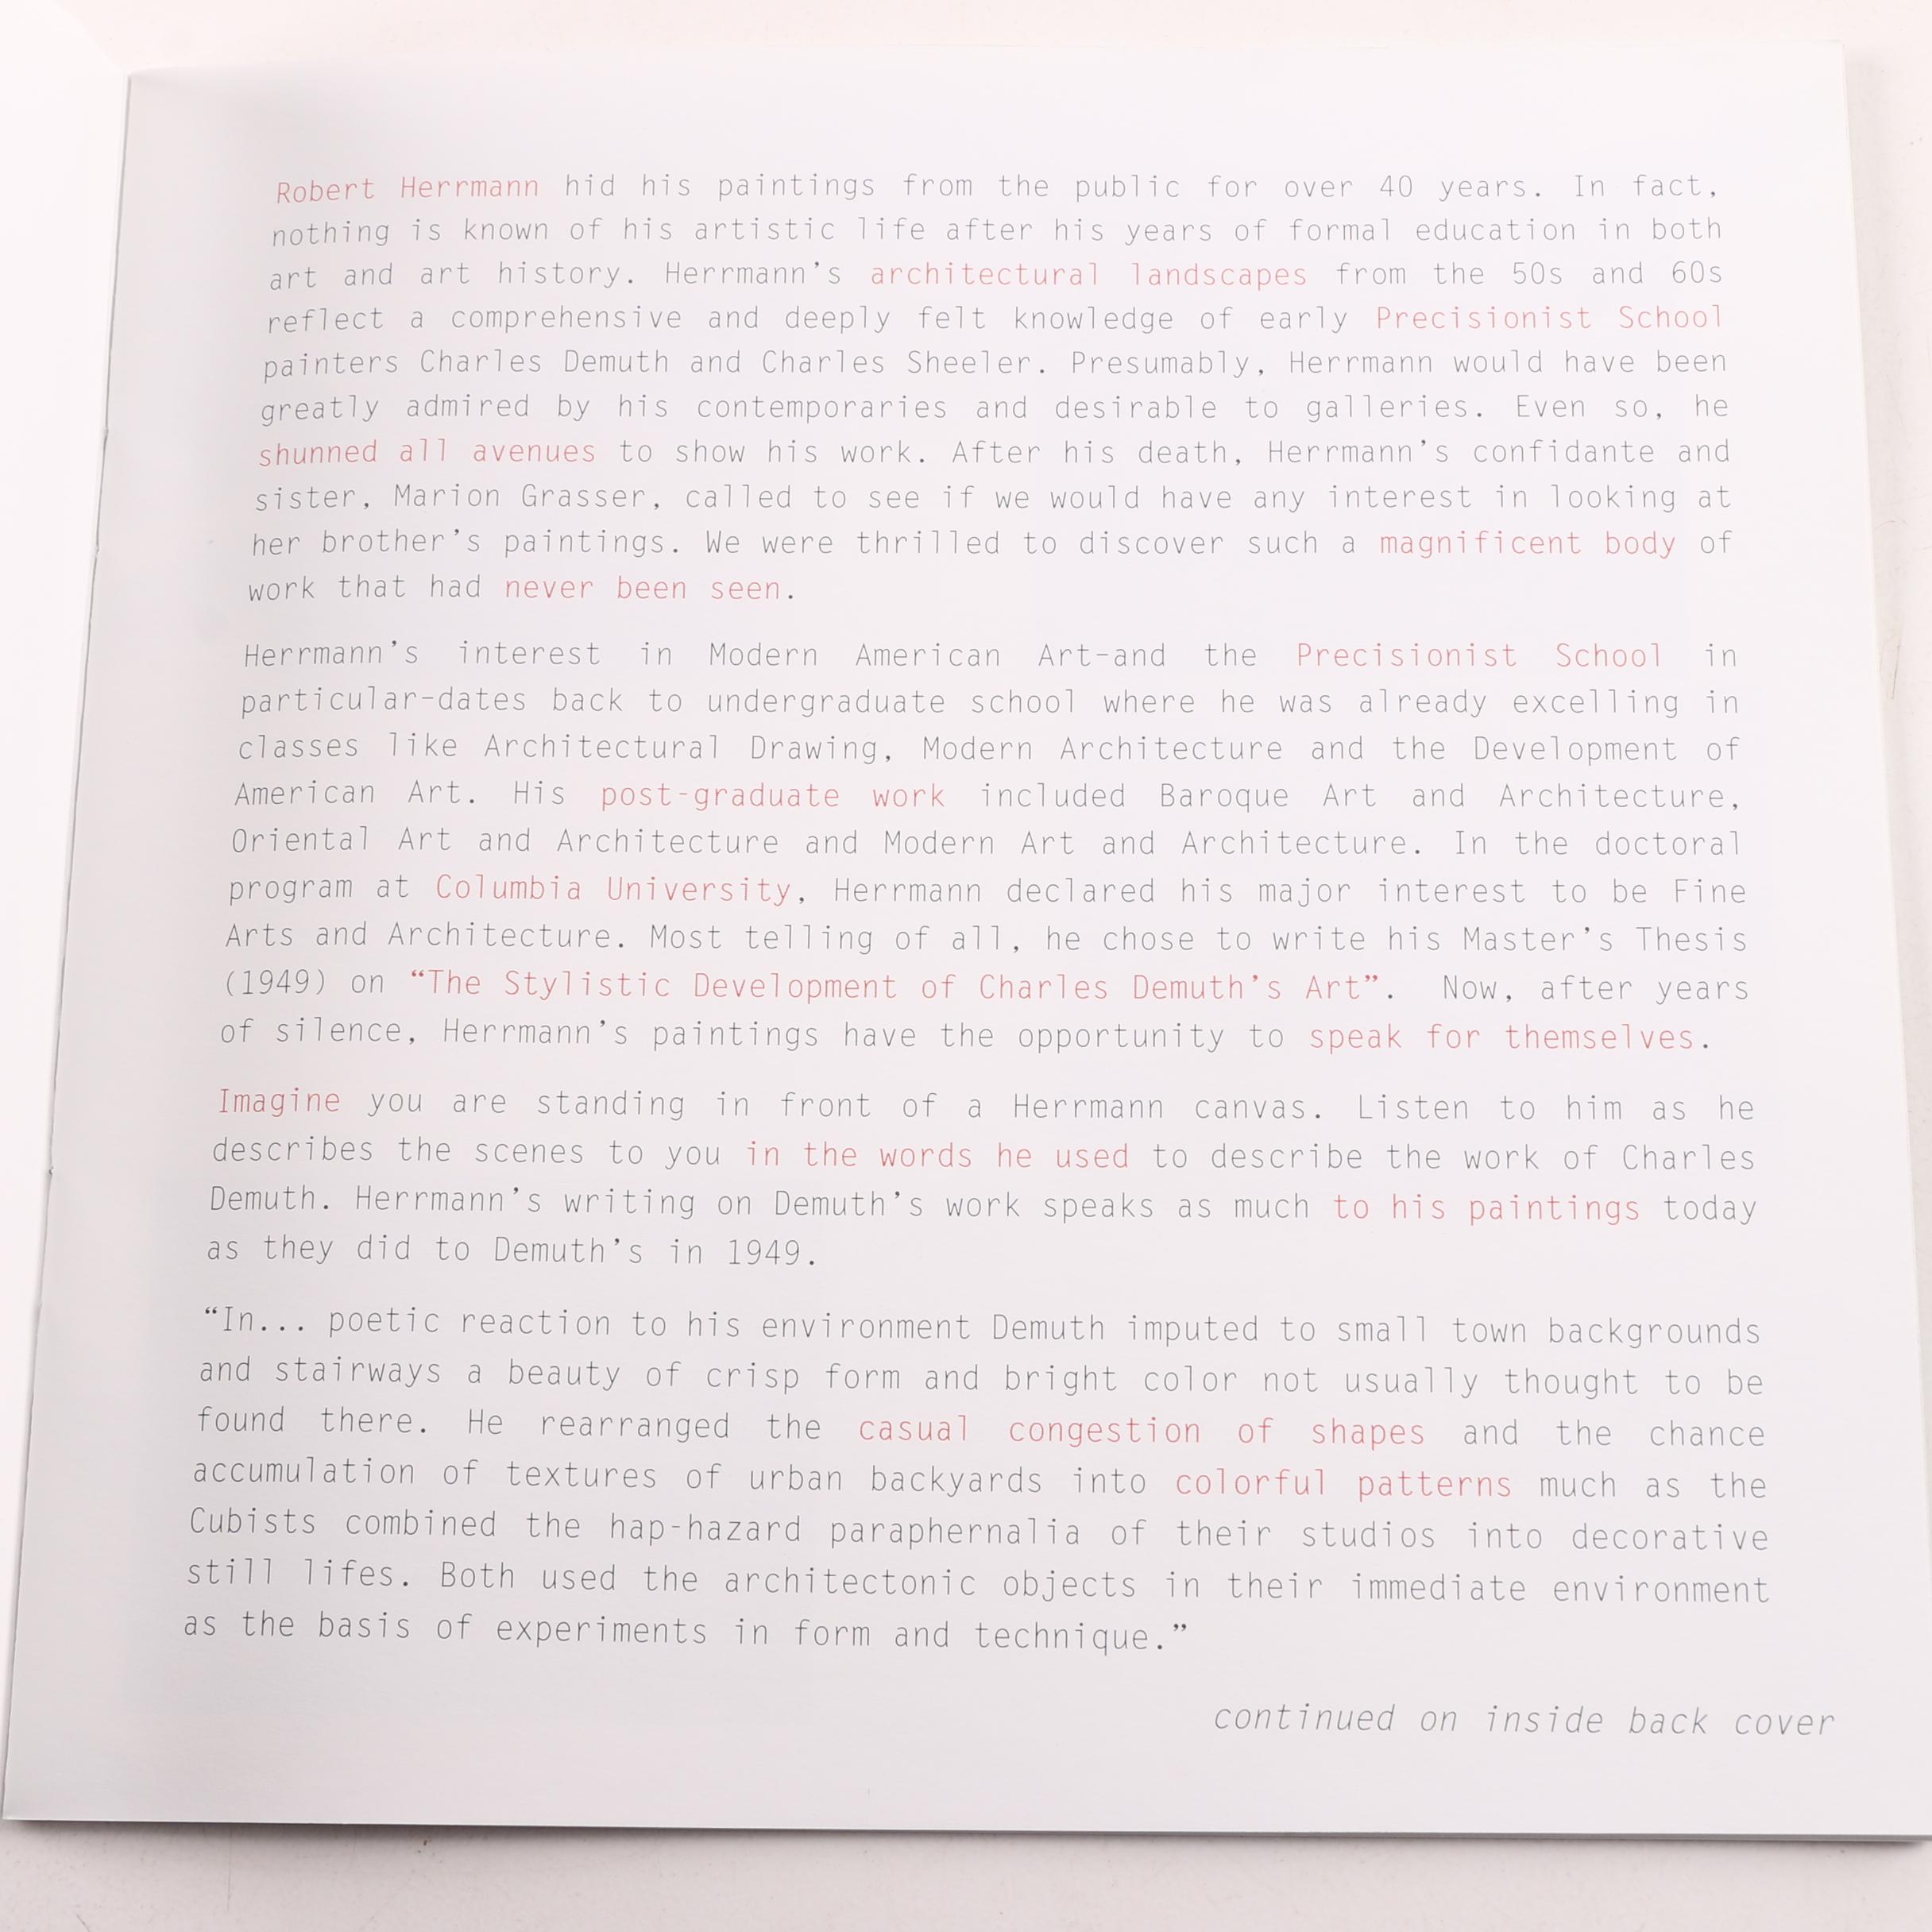 Robert Herrmann hid his paintings from the public for over 40 years. In fact,
nothing is known of his artistic life after his years of formal education in both
art and art history. Herrmann’s architectural landscapes from the 50s and 60s
reflect a comprehensive and deeply felt knowledge of early Precisionist School
painters Charles Demuth and Charles Sheeler. Presumably, Herrmann would have been
greatly admired by his contemporaries and desirable to galleries. Even so, he
shunned all avenues to show his work. After his death, Herrmann’s confidante and
sister, Marion Grasser, called to see if we would have any interest in looking at
her brother’s paintings. We were thrilled to discover such a magnificent body of
work that had never been seen.
Herrmann’s interest in Modern American Art-and the Precisionist School in
particular-dates back to undergraduate school where he was already excelling in
classes like Architectural Drawing, Modern Architecture and the Development of
American Art. His post-graduate work included Baroque Art and Architecture,
Oriental Art and Architecture and Modern Art and Architecture. In the doctoral
program at Columbia University, Herrmann declared his major interest to be Fine
Arts and Architecture. Most telling of all, he chose to write his Master’s Thesis
(1949) on “The Stylistic Development of Charles Demuth’s Art”. Now, after years
of silence, Herrmann’s paintings have the opportunity to speak for themselves.
Imagine you are standing in front of a Herrmann canvas. Listen to him as he
describes the scenes to you in the words he used to describe the work of Charles
Demuth. Herrmann’s writing on Demuth’s work speaks as much to his paintings today
as they did to Demuth’s in 1949.
“In... poetic reaction to his environment Demuth imputed to small town backgrounds
and stairways a beauty of crisp form and bright color not usually thought to be
found there. He rearranged the casual congestion of shapes and the chance
accumulation of textures of urban backyards into colorful patterns much as the
Cubists combined the hap-hazard paraphernalia of their studios into decorative
still lifes. Both used the architectonic objects in their immediate environment
as the basis of experiments in form and technique.”
continued on inside back cover